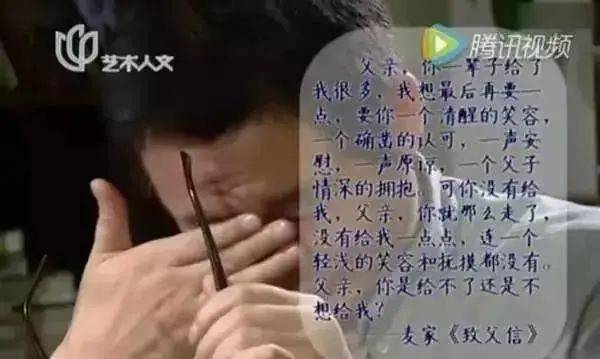 艺术人文
腾讯视频
父亲，你一辈子给了
我很多，我想最后再要一
点，要你一个清醒的笑容，
一个确凿的认可，一声安
慰，一声原谅，一个父子
情深的拥抱。可你没有给
我，父亲，你就那么走了，
没有给我一点点，连一个
轻浅的笑容和抚摸都没有。
父亲，你是给不了还是不
想给我？
——麦家《致父信》